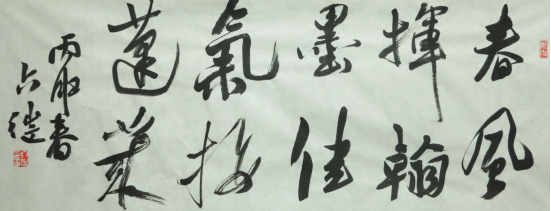 春風
揮翰
墨佳
氣接
蓬萊
丙申春